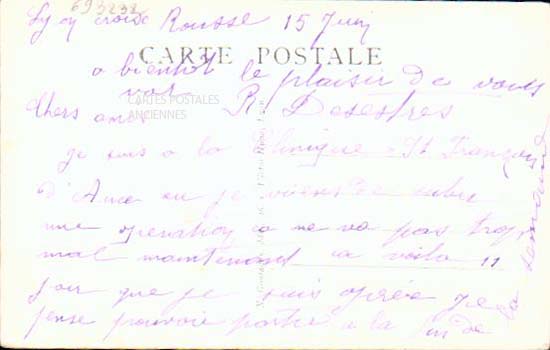 693232
Lyon croix Rousse 15 Juin
CARTE POSTALE
a bientot le plaisir de vous
voir R Desestres
CARTES POSTALES
ANCIENNES
Chers amis
je suis a la Clinique St François
d' Assise ou je viens de subir
une operation ça ne va pas trop
mal maintenant ca voila 11
jour que je suis opérée je
pense pouvoir partir a la fin de
la semaine